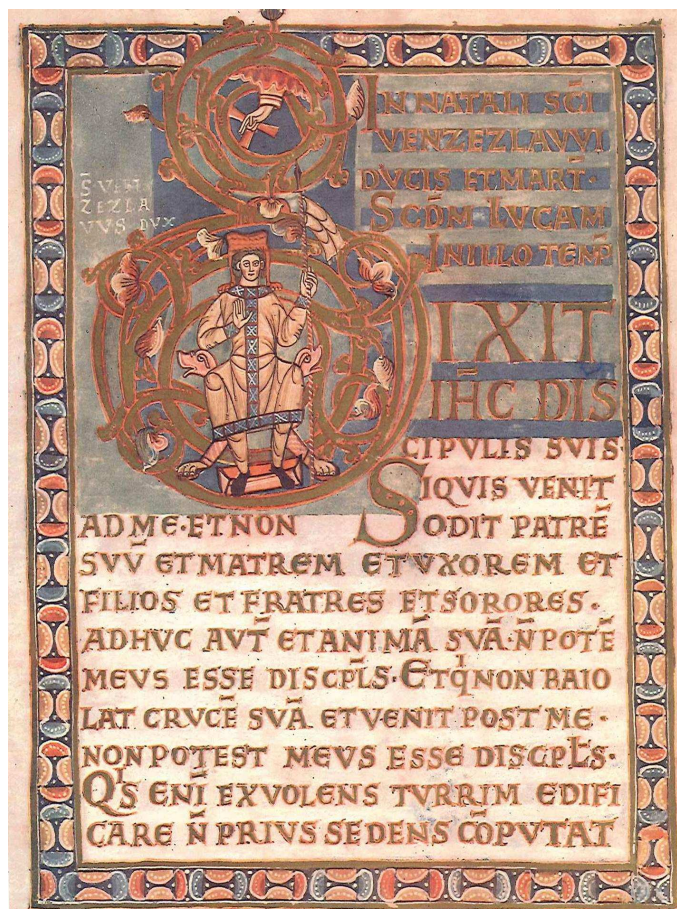 IN NATALI SC̄I
VENZEZLAVVI
DVCIS ET MART̄·
SC̄DM LVCAM
IN ILLO TEMP̄
S̄ VEN
ZEZLA
VVS DVX
DIXIT
IH̄C DIS
CIPVLIS SVIS
SIQVIS VENIT
AD ME·ET NON ODIT PATRĒ
SVV̄ ET MATREM ET VXOREM ET
FILIOS ET FRATRES ET SORORES·
ADHVC AVT̄ ET ANIMĀ SVĀ·N̄ POTĒ
MEVS ESSE DISCPL̄S·ET qͥ NON BAIO
LAT CRVCĒ SVĀ ET VENIT POST ME·
NON POTEST MEVS ESSE DISCPL̄S·
QͥS ENĪ EX VOLENS TVRRIM EDIFI
CARE N̄ PRIVS SEDENS CŌPVTAT